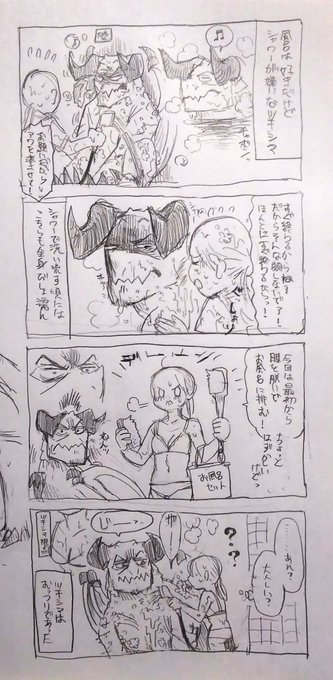 風呂は好きだけど
シャワーが嫌いなツキシマ
チャポン
お願いだから
アワを流させて!
すぐ終わるからね?
だからそんな顔しないで〜!
ほんとにすぐ終わるからっ!
シャワーで洗い流す頃には
こっちも全身びしょ濡れ
今回は最初から
服を脱いで
お風呂に挑む!
ちょっと
はずかしい
けどっ
お風呂
セット
……あれ?
大人しい?
???
じーーっ
ツキシマは
おっフリであった